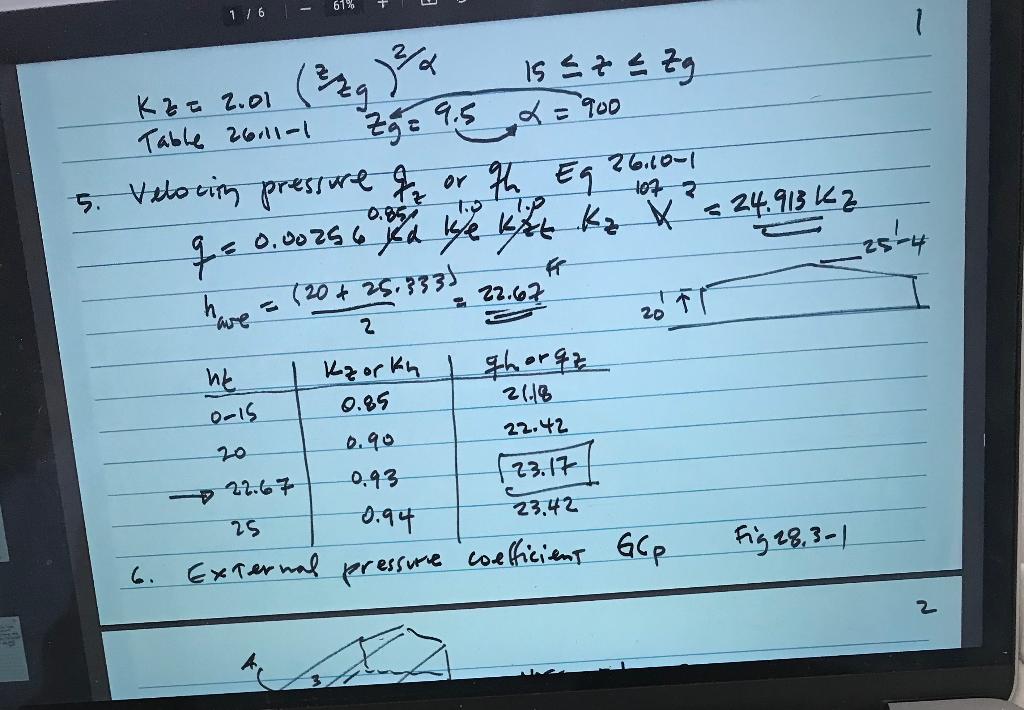 1 / 6 — 61% +
1
Kz = 2.01 (z/zg)^2/α 15 ≤ z ≤ zg
Table 26.11-1 zg = 9.5 α = 900
5. Velocity pressure qz or qh Eq 26.10-1
0.85 1.0 1.0 107
q = 0.00256 Kd Ke Kzt Kz V² = 24.913 Kz
25'-4
have = (20 + 25.333) / 2 = 22.67 ft
20'
ht Kz or Kh qh or qz
0-15 0.85 21.18
20 0.90 22.42
→ 22.67 0.93 23.17
25 0.94 23.42
6. External pressure coefficient GCp Fig 28.3-1
2
3